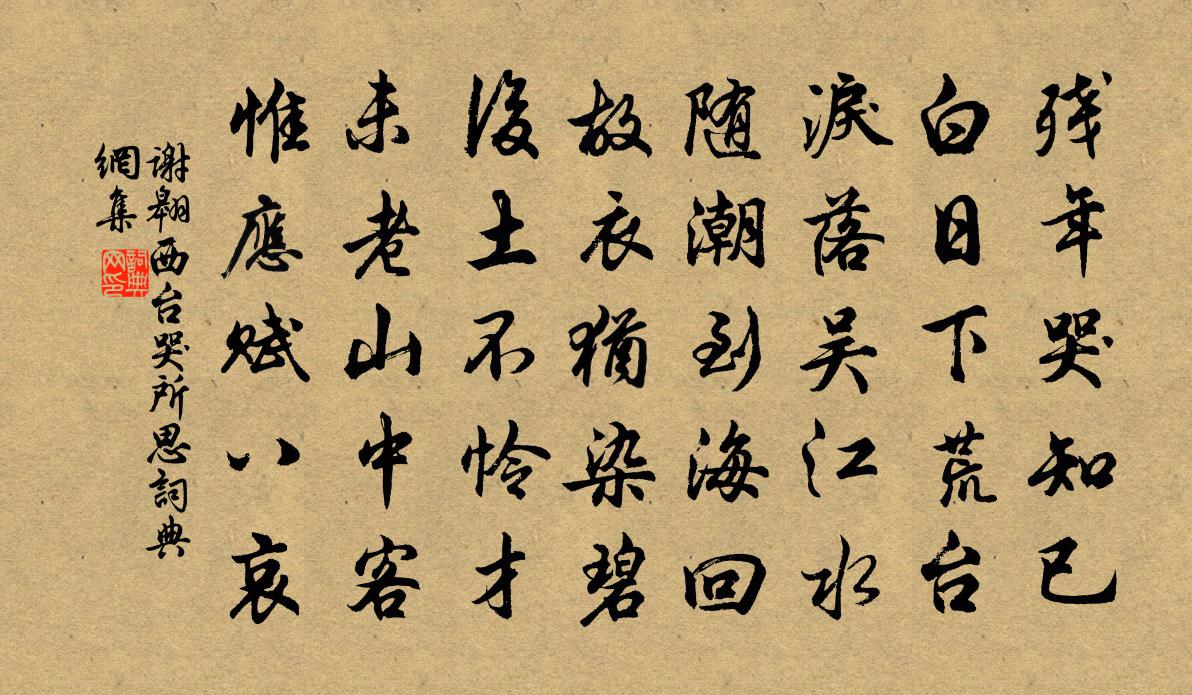 残年哭知已
白日下荒台
淚落吴江水
随潮到海回
故衣猶染碧
後土不怜才
未老山中客
惟應赋八哀
謝翱西台哭所思詞典
網集
詞典
网印